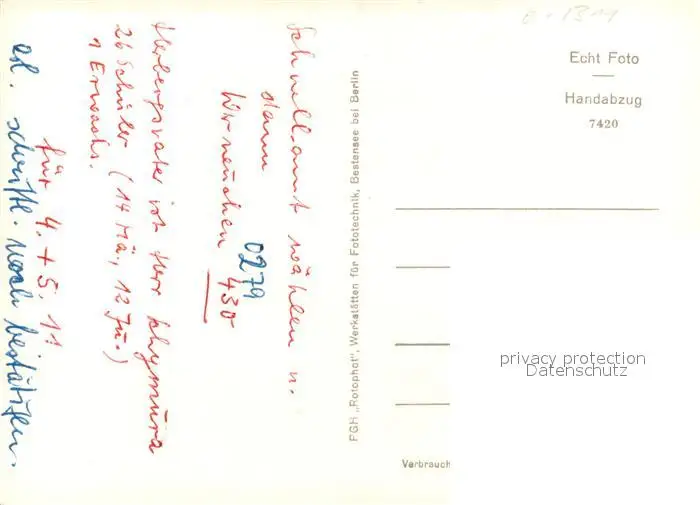 Schnellamt wählen u.
dann
Werneuchen 430
0279
Herbergsvater ist Herr Schymura
26 Schüler (14 Mä, 12 Ju.)
1 Erwachs.
für 4. + 5. 11
schriftl. noch bestätigen.
FGH „Rotophot", Werkstätten für Fototechnik, Bestensee bei Berlin
Echt Foto
Handabzug
7420
privacy protection
Datenschutz